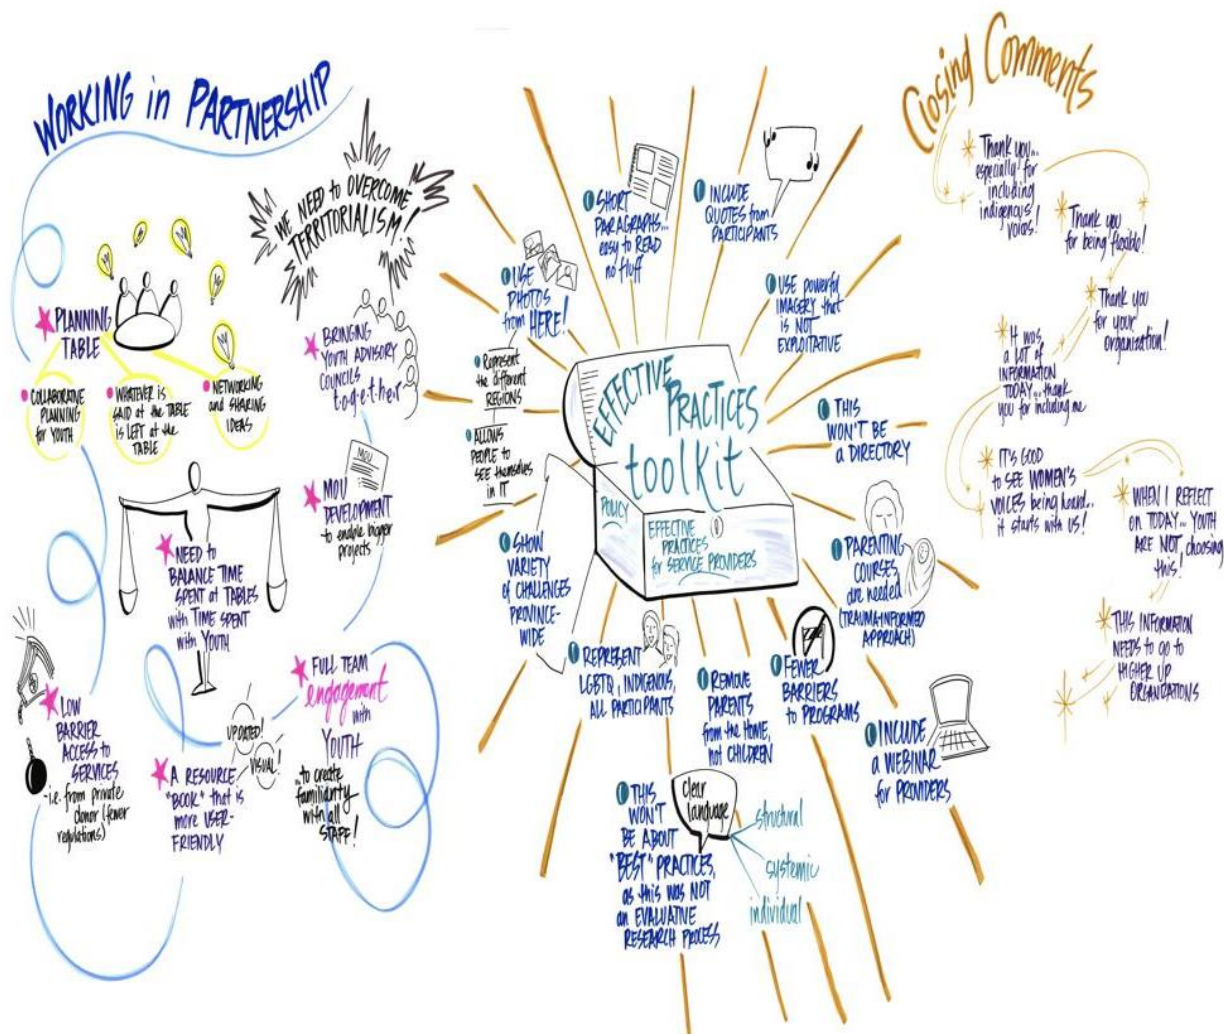 WORKING in PARTNERSHIP
WE NEED to OVERCOME
TERRITORIALISM!
PLANNING
TABLE
COLLABORATIVE
PLANNING
for YOUTH
WHATEVER is
SAID at the TABLE
is LEFT at the
TABLE
NETWORKING
and SHARING
IDEAS
BRINGING
YOUTH ADVISORY
COUNCILS
t·o·g·e·t·h·e·r
MOU
MOU
DEVELOPMENT
to enable bigger
projects
NEED to
BALANCE TIME
SPENT at TABLES
with TIME SPENT
with YOUTH
LOW
BARRIER
ACCESS to
SERVICES
-i.e. from private
donor (fewer
regulations)
A RESOURCE
"BOOK" that is
more USER-
FRIENDLY
UPDATED!
VISUAL!
FULL TEAM
engagement
with
YOUTH
...to create
familiarity
with all
STAFF!
EFFECTIVE
PRACTICES
toolkit
POLICY
EFFECTIVE
PRACTICES
for SERVICE PROVIDERS
SHORT
PARAGRAPHS...
easy to READ
no fluff
INCLUDE
QUOTES from
PARTICIPANTS
USE
PHOTOS
from HERE!
Represent
the different
REGIONS
ALLOWS
PEOPLE to
SEE themselves
in IT
USE powerful
IMAGERY that
is NOT
EXPLOITATIVE
THIS
WON'T BE
a DIRECTORY
SHOW
VARIETY
of CHALLENGES
PROVINCE-
WIDE
PARENTING
COURSES
are needed
(TRAUMA-INFORMED
APPROACH)
REPRESENT
LGBTQ, INDIGENOUS,
ALL PARTICIPANTS
REMOVE
PARENTS
from the HOME,
not CHILDREN
FEWER
BARRIERS
to PROGRAMS
INCLUDE
a WEBINAR
for PROVIDERS
THIS
WON'T
BE ABOUT
"BEST" PRACTICES,
as this was NOT
an EVALUATIVE
RESEARCH PROCESS
clear
language
structural
systemic
individual
Closing Comments
Thank you...
especially for
including
indigenous
voices!
Thank you
for being flexible!
Thank you
for your
organization!
IT WAS
a LOT of
INFORMATION
TODAY...thank
you for including me
IT'S GOOD
to SEE WOMEN'S
VOICES being heard...
it starts with us!
WHEN I REFLECT
on TODAY... YOUTH
ARE NOT choosing
this!
THIS INFORMATION
NEEDS to go to
HIGHER UP
ORGANIZATIONS